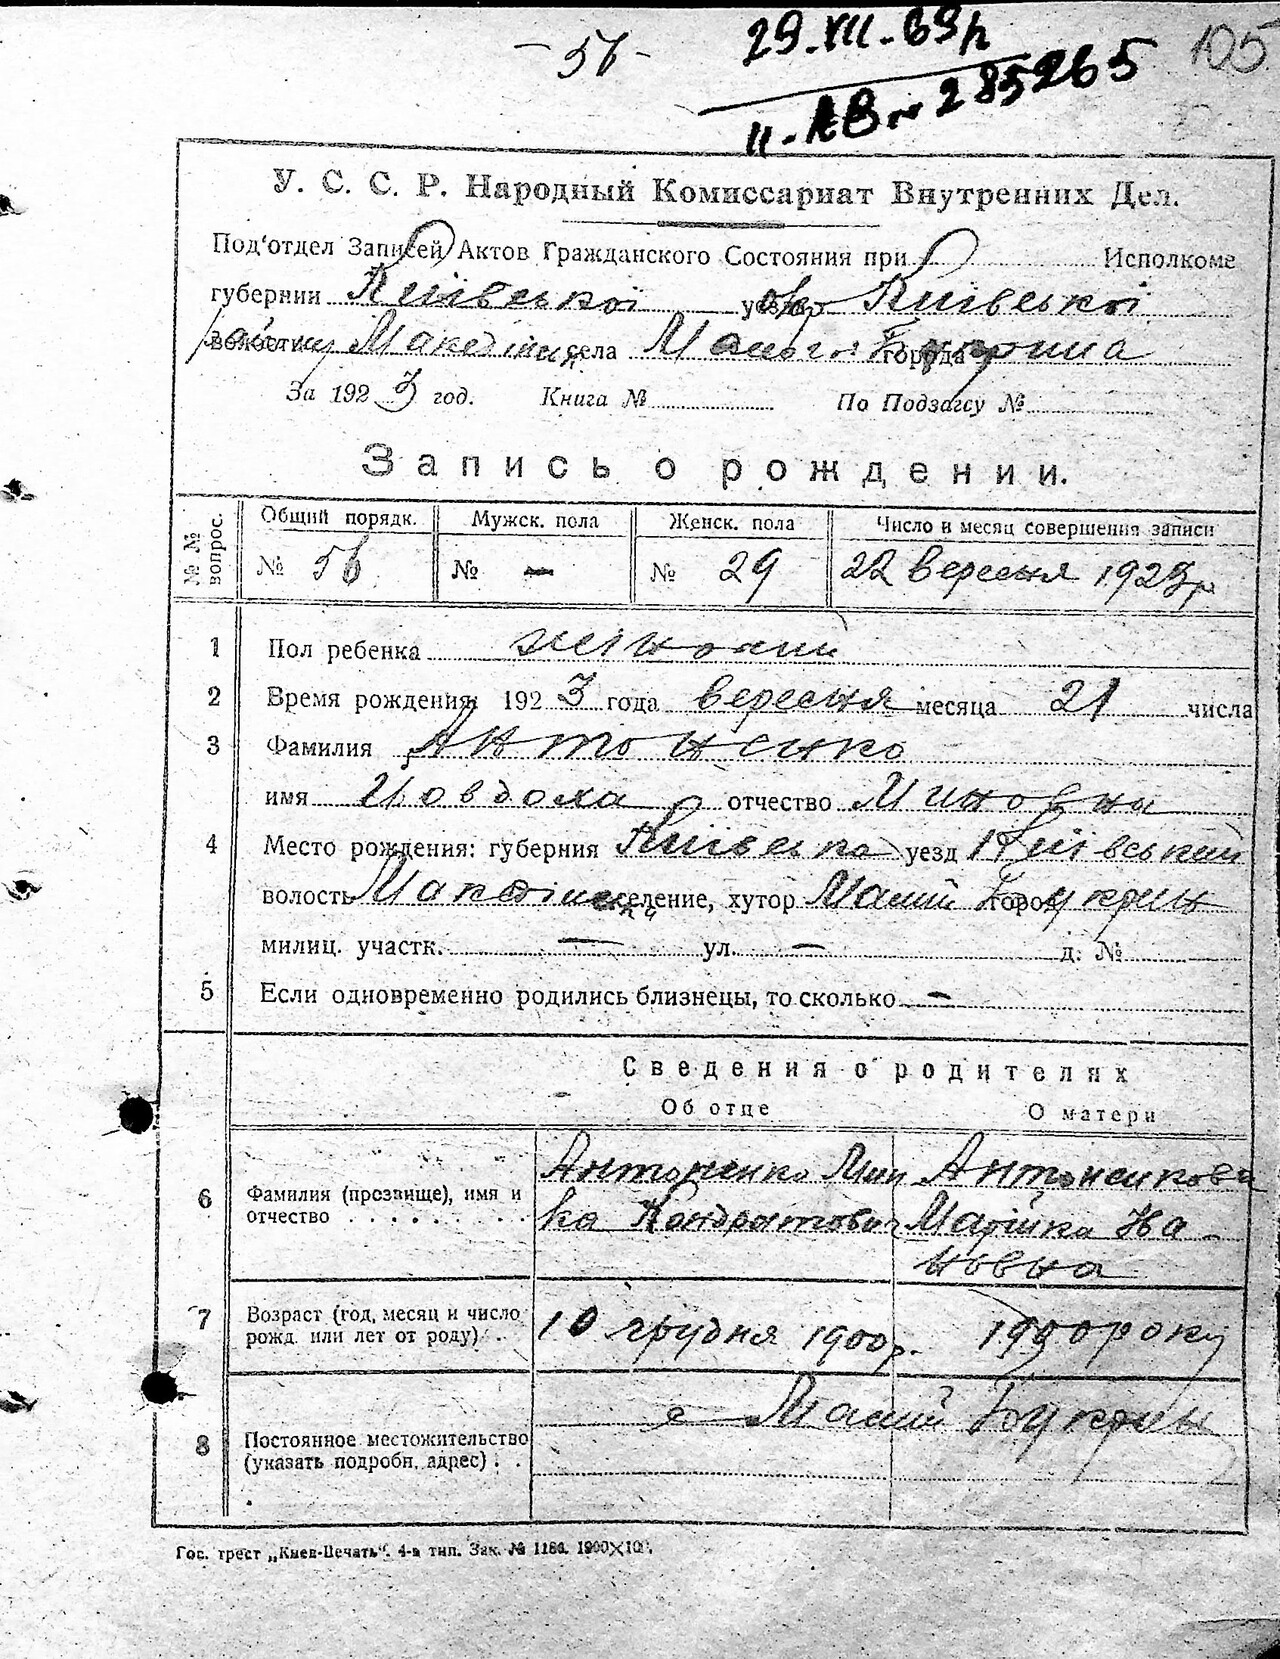 - 56 -
29.VII.69р
105
II-АВ № 285265
У. С. С. Р. Народный Комиссариат Внутренних Дел.
Под'отдел Записей Актов Гражданского Состояния при Исполкоме
губернии Київської уезда окр Київської
волости району Макіїнс села Малого города Букрина
За 1923 год. Книга № По Подзагсу №
Запись о рождении.
№ № вопрос.
Общий порядк. Мужск. пола Женск. пола Число и месяц совершения записи
№ 56 № — № 29 22 вересня 1923р
1 Пол ребенка жіночий
2 Время рождения: 1923 года вересня месяца 21 числа
3 Фамилия Антоненко
имя Йовдоха отчество Миновна
4 Место рождения: губерния Київська уезд Київський
волость селение, хутор Малий город Букрин
милиц. участк. — ул. — д. №
5 Если одновременно родились близнецы, то сколько —
Сведения о родителях
Об отце О матери
6 Фамилия (прозвище), имя и отчество . . . . . . . . .
Антоненко Мин
ка Кондратович
Антоненкова
Марійка Ива-
новна
7 Возраст (год, месяц и число рожд. или лет от роду) . .
10 грудня 1900р. 1900 року
8 Постоянное местожительство (указать подробн. адрес) . .
с Малий Букрин
Гос. трест „Киев-Печать“. 4-я тип. Зак. № 1186. 1900×100.